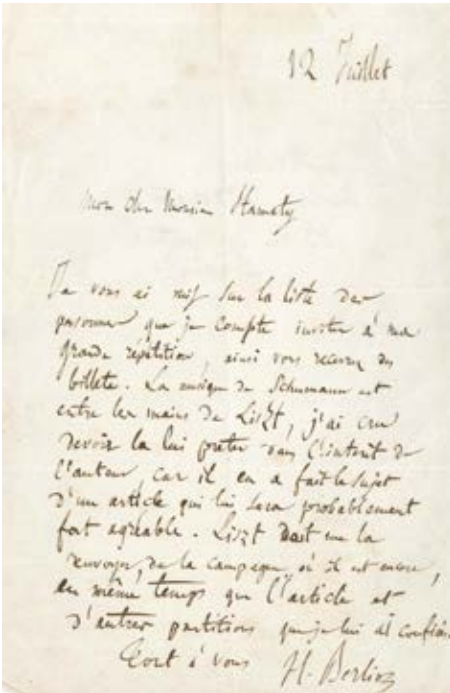 12 Juillet
Mon cher Monsieur Stamaty
Je vous ai mis sur la liste des
personnes que je compte inviter à ma
grande répétition, ainsi vous recevrez des
billets. La musique de Schumann est
entre les mains de Liszt, j'ai cru
devoir la lui prêter dans l'intérêt de
l'auteur, car il en a fait le sujet
d'un article qui lui sera probablement
fort agréable. Liszt doit me la
renvoyer, de la campagne où il est encore,
en même temps que l'article et
d'autres partitions que je lui ai confiées.
Tout à vous H. Berlioz